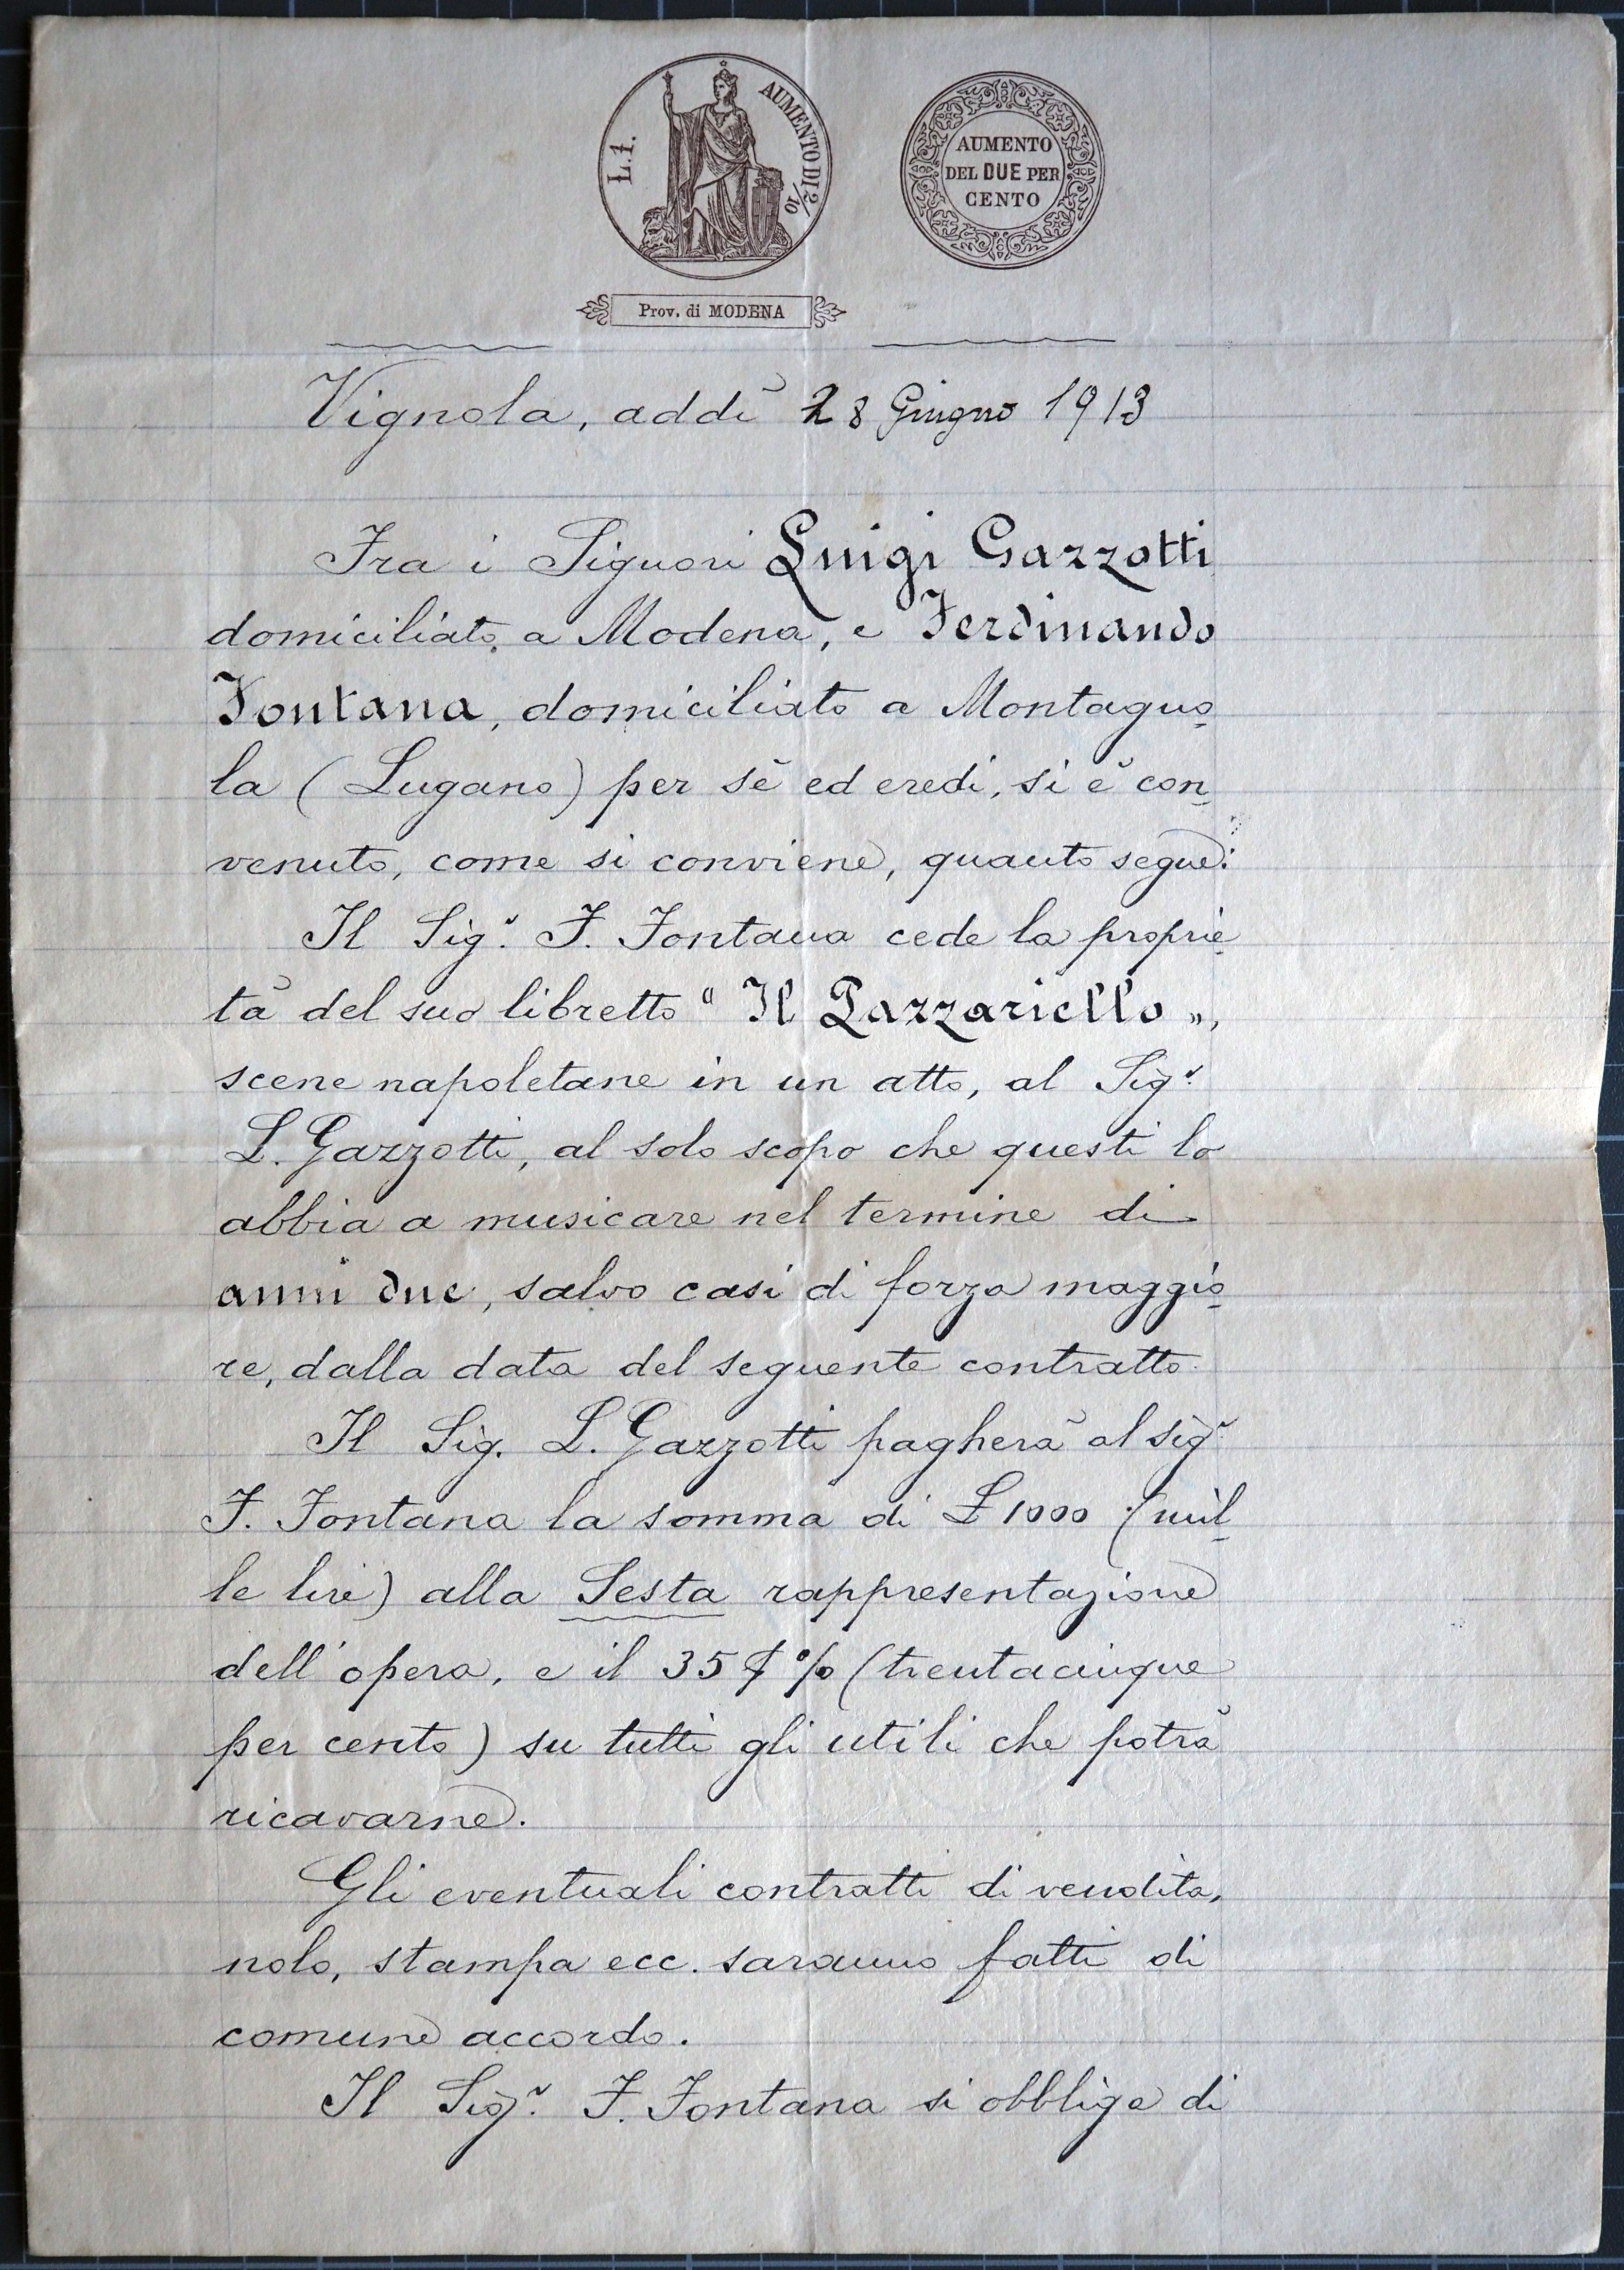 L.1. AUMENTO DI 2/10
AUMENTO
DEL DUE PER
CENTO
Prov. di MODENA
Vignola, addì 28 Giugno 1913
Fra i Signori Luigi Gazzotti
domiciliato a Modena, e Ferdinando
Fontana, domiciliato a Montagno-
la (Lugano) per sè ed eredi, si è con-
venuto, come si conviene, quanto segue:
Il Sig.r F. Fontana cede la proprie-
tà del suo libretto "Il Pazzariello",
scene napoletane in un atto, al Sig.r
L. Gazzotti, al solo scopo che questi lo
abbia a musicare nel termine di
anni due, salvo casi di forza maggio-
re, dalla data del seguente contratto.
Il Sig. L. Gazzotti pagherà al sig.r
F. Fontana la somma di £ 1000 (mil-
le lire) alla Sesta rappresentazione
dell'opera, e il 35 % (trentacinque
per cento) su tutti gli utili che potrà
ricavarne.
Gli eventuali contratti di vendita,
nolo, stampa ecc. saranno fatti di
comune accordo.
Il Sig.r F. Fontana si obbliga di